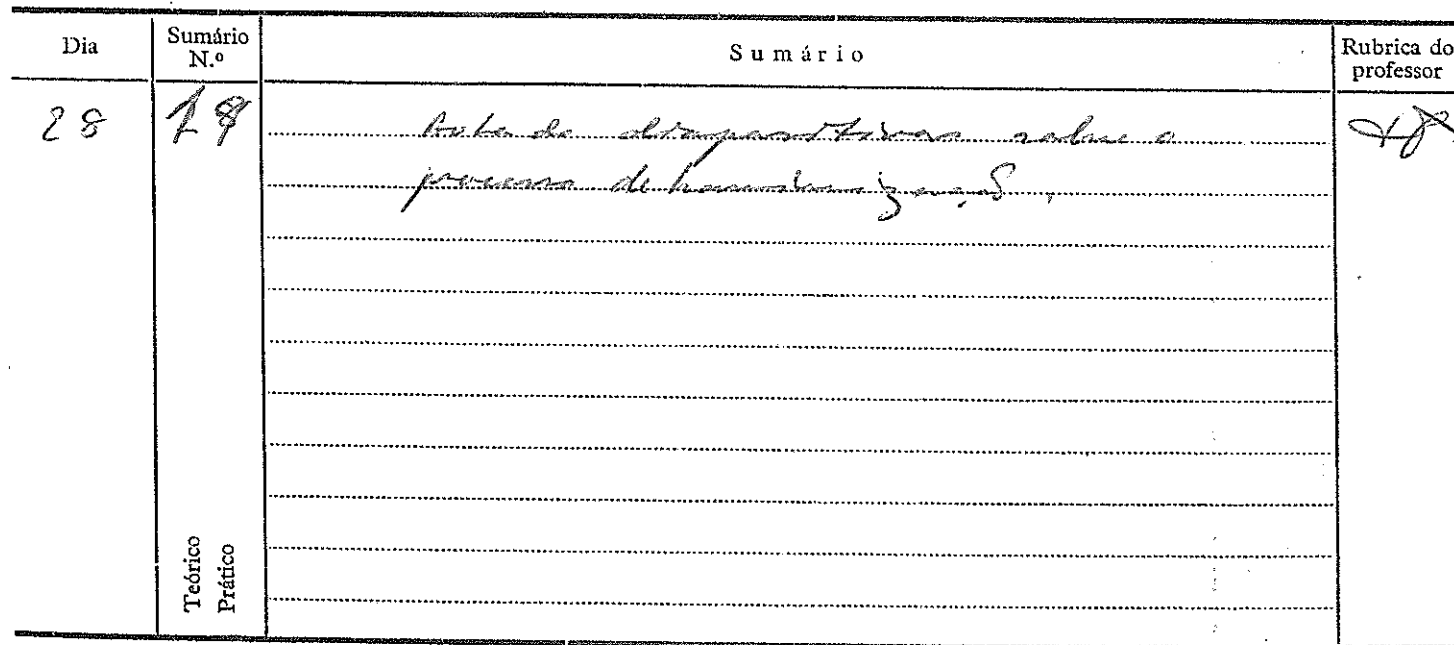 Dia
Sumário N.º
Sumário
Rubrica do professor
28
Aula de diapositivos sobre o
processo de hominização.
Teórico
Prático